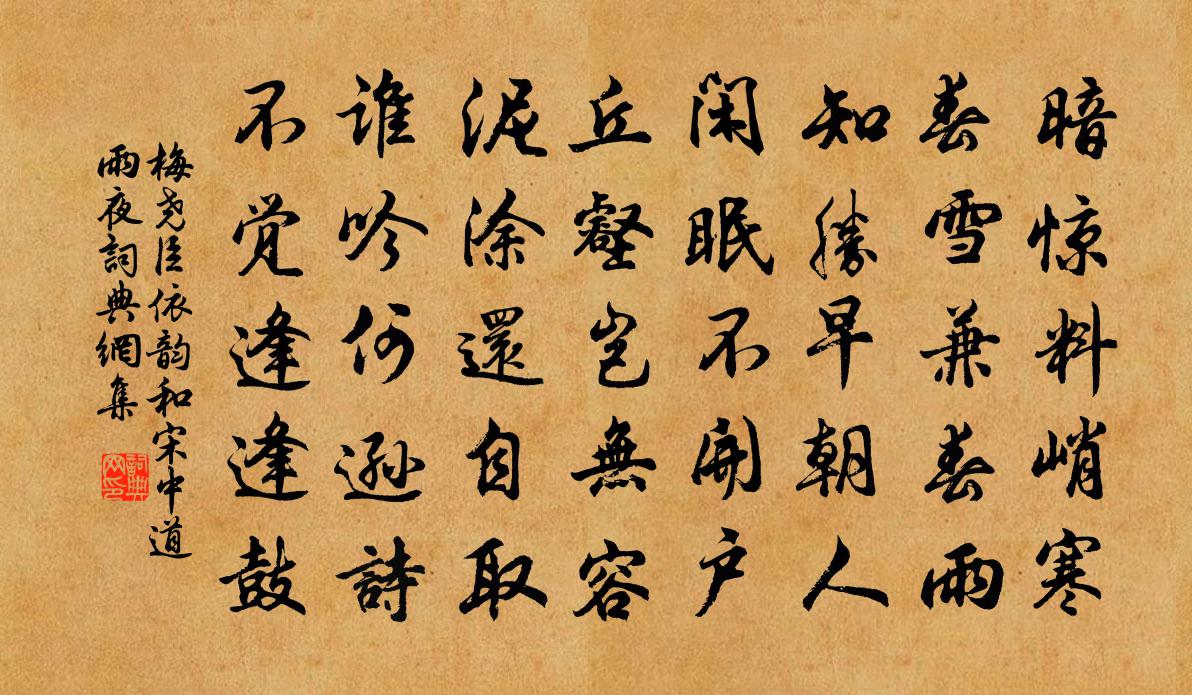 暗惊料峭寒
春雪兼春雨
知勝早朝人
闲眠不開户
丘壑岂無容
泥涂還自取
谁吟何遜詩
不觉逢逢鼓
梅尧臣依韵和宋中道
雨夜詞典網集
詞典网印